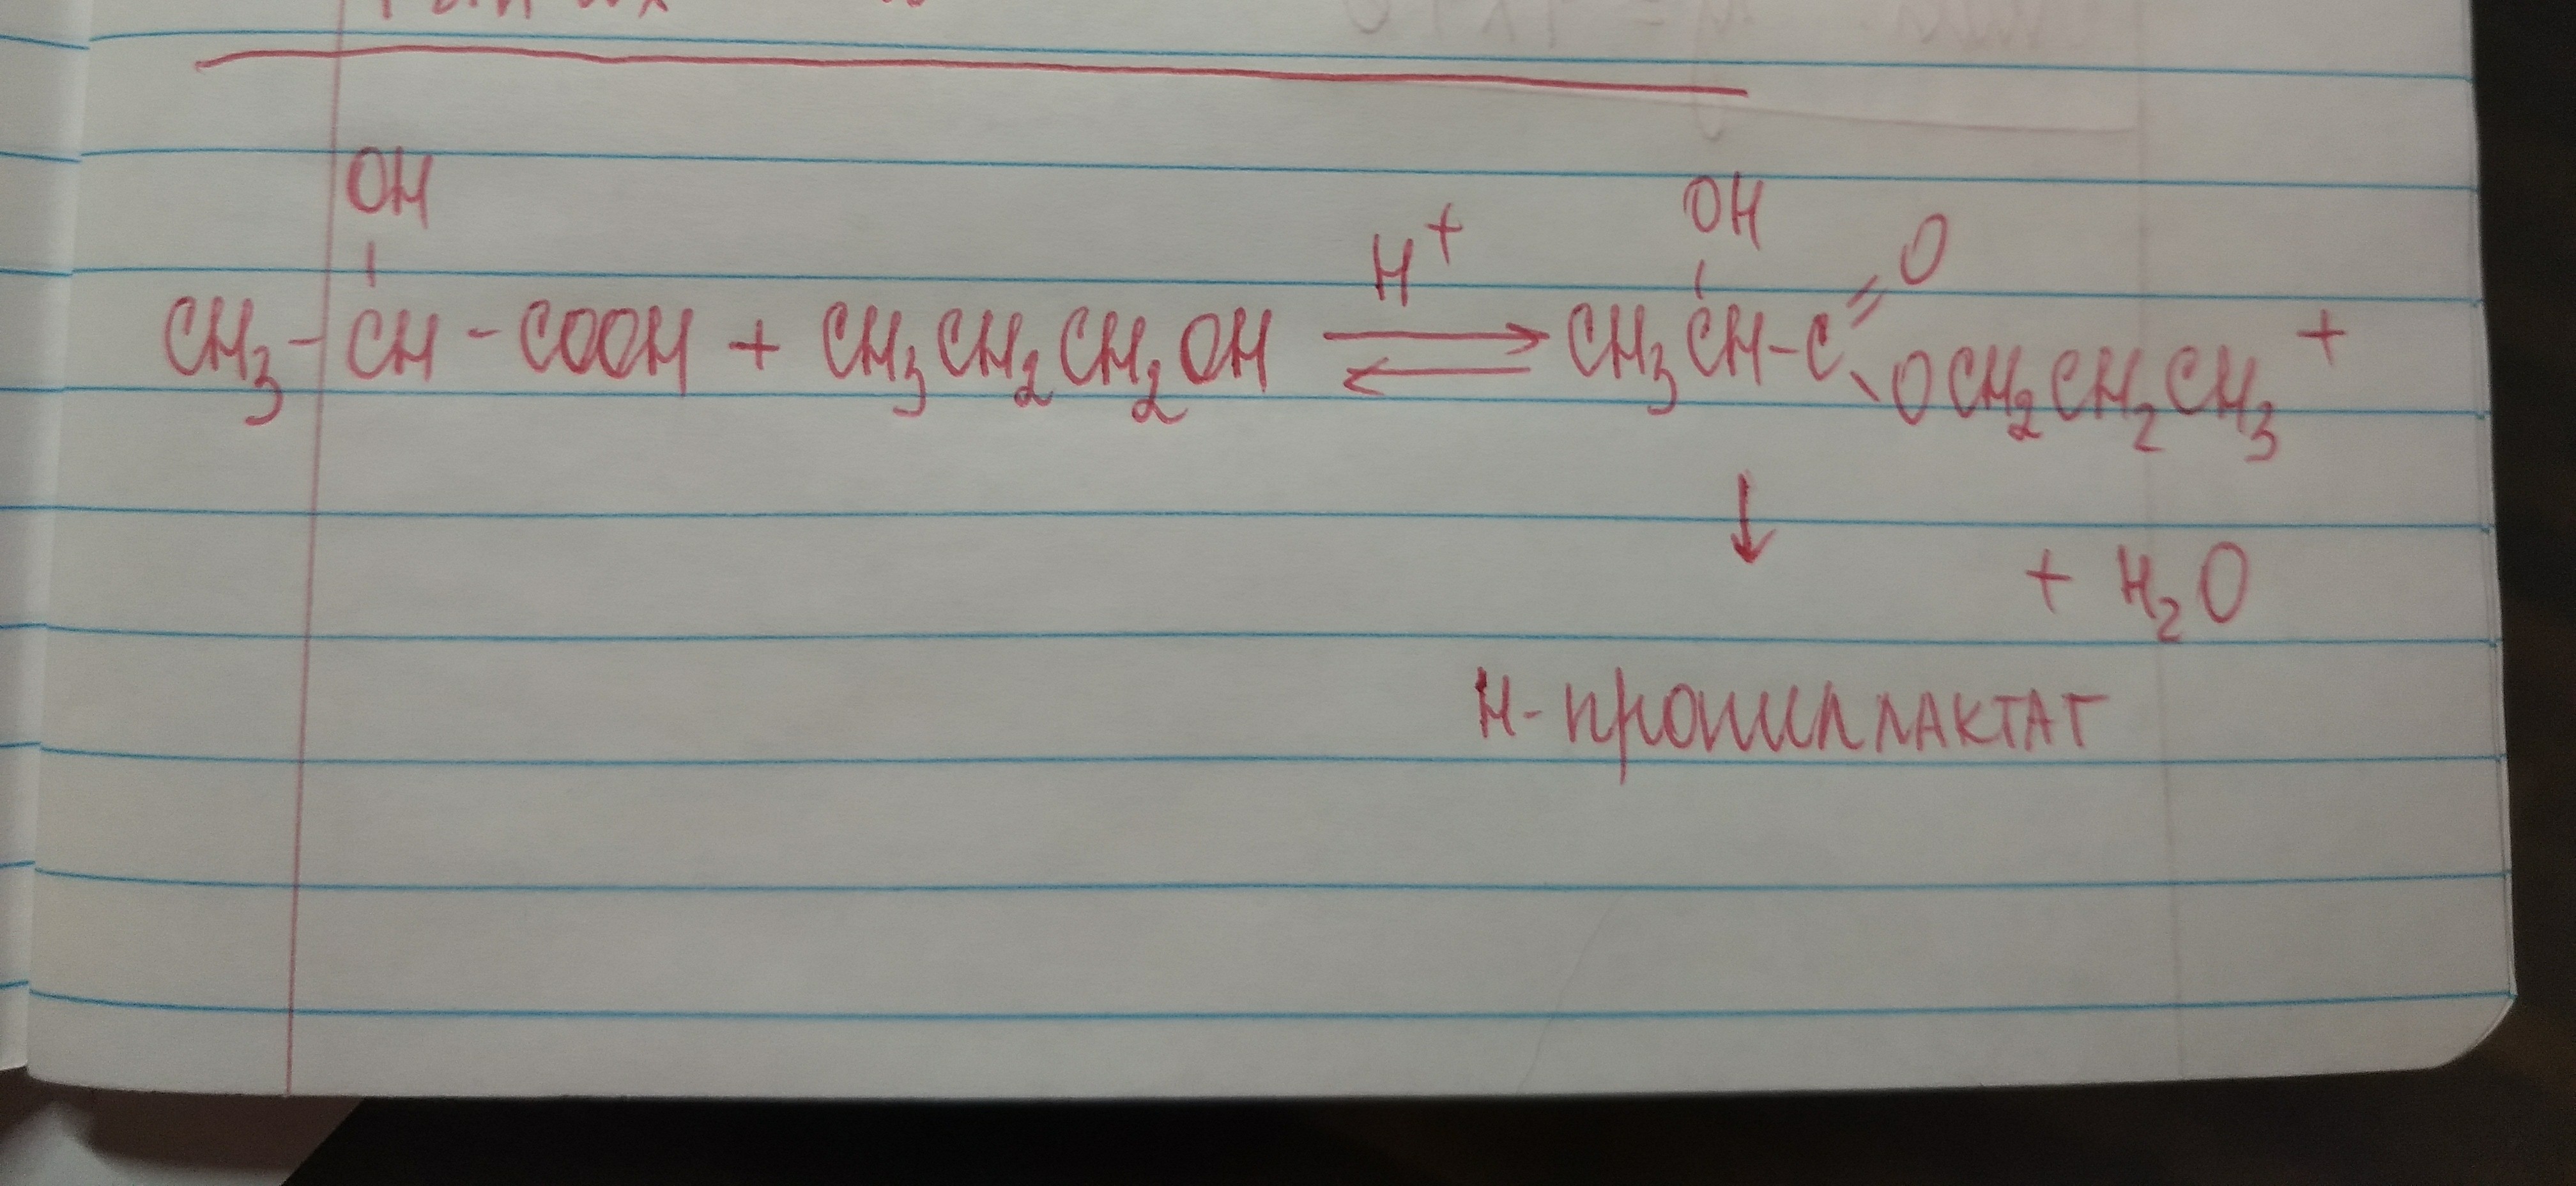 OH OH
CH₃-CH-COOH + CH₃CH₂CH₂OH ⇄ H⁺ CH₃CH-C=O OCH₂CH₂CH₃ +
↓ + H₂O
н-пропиллактат